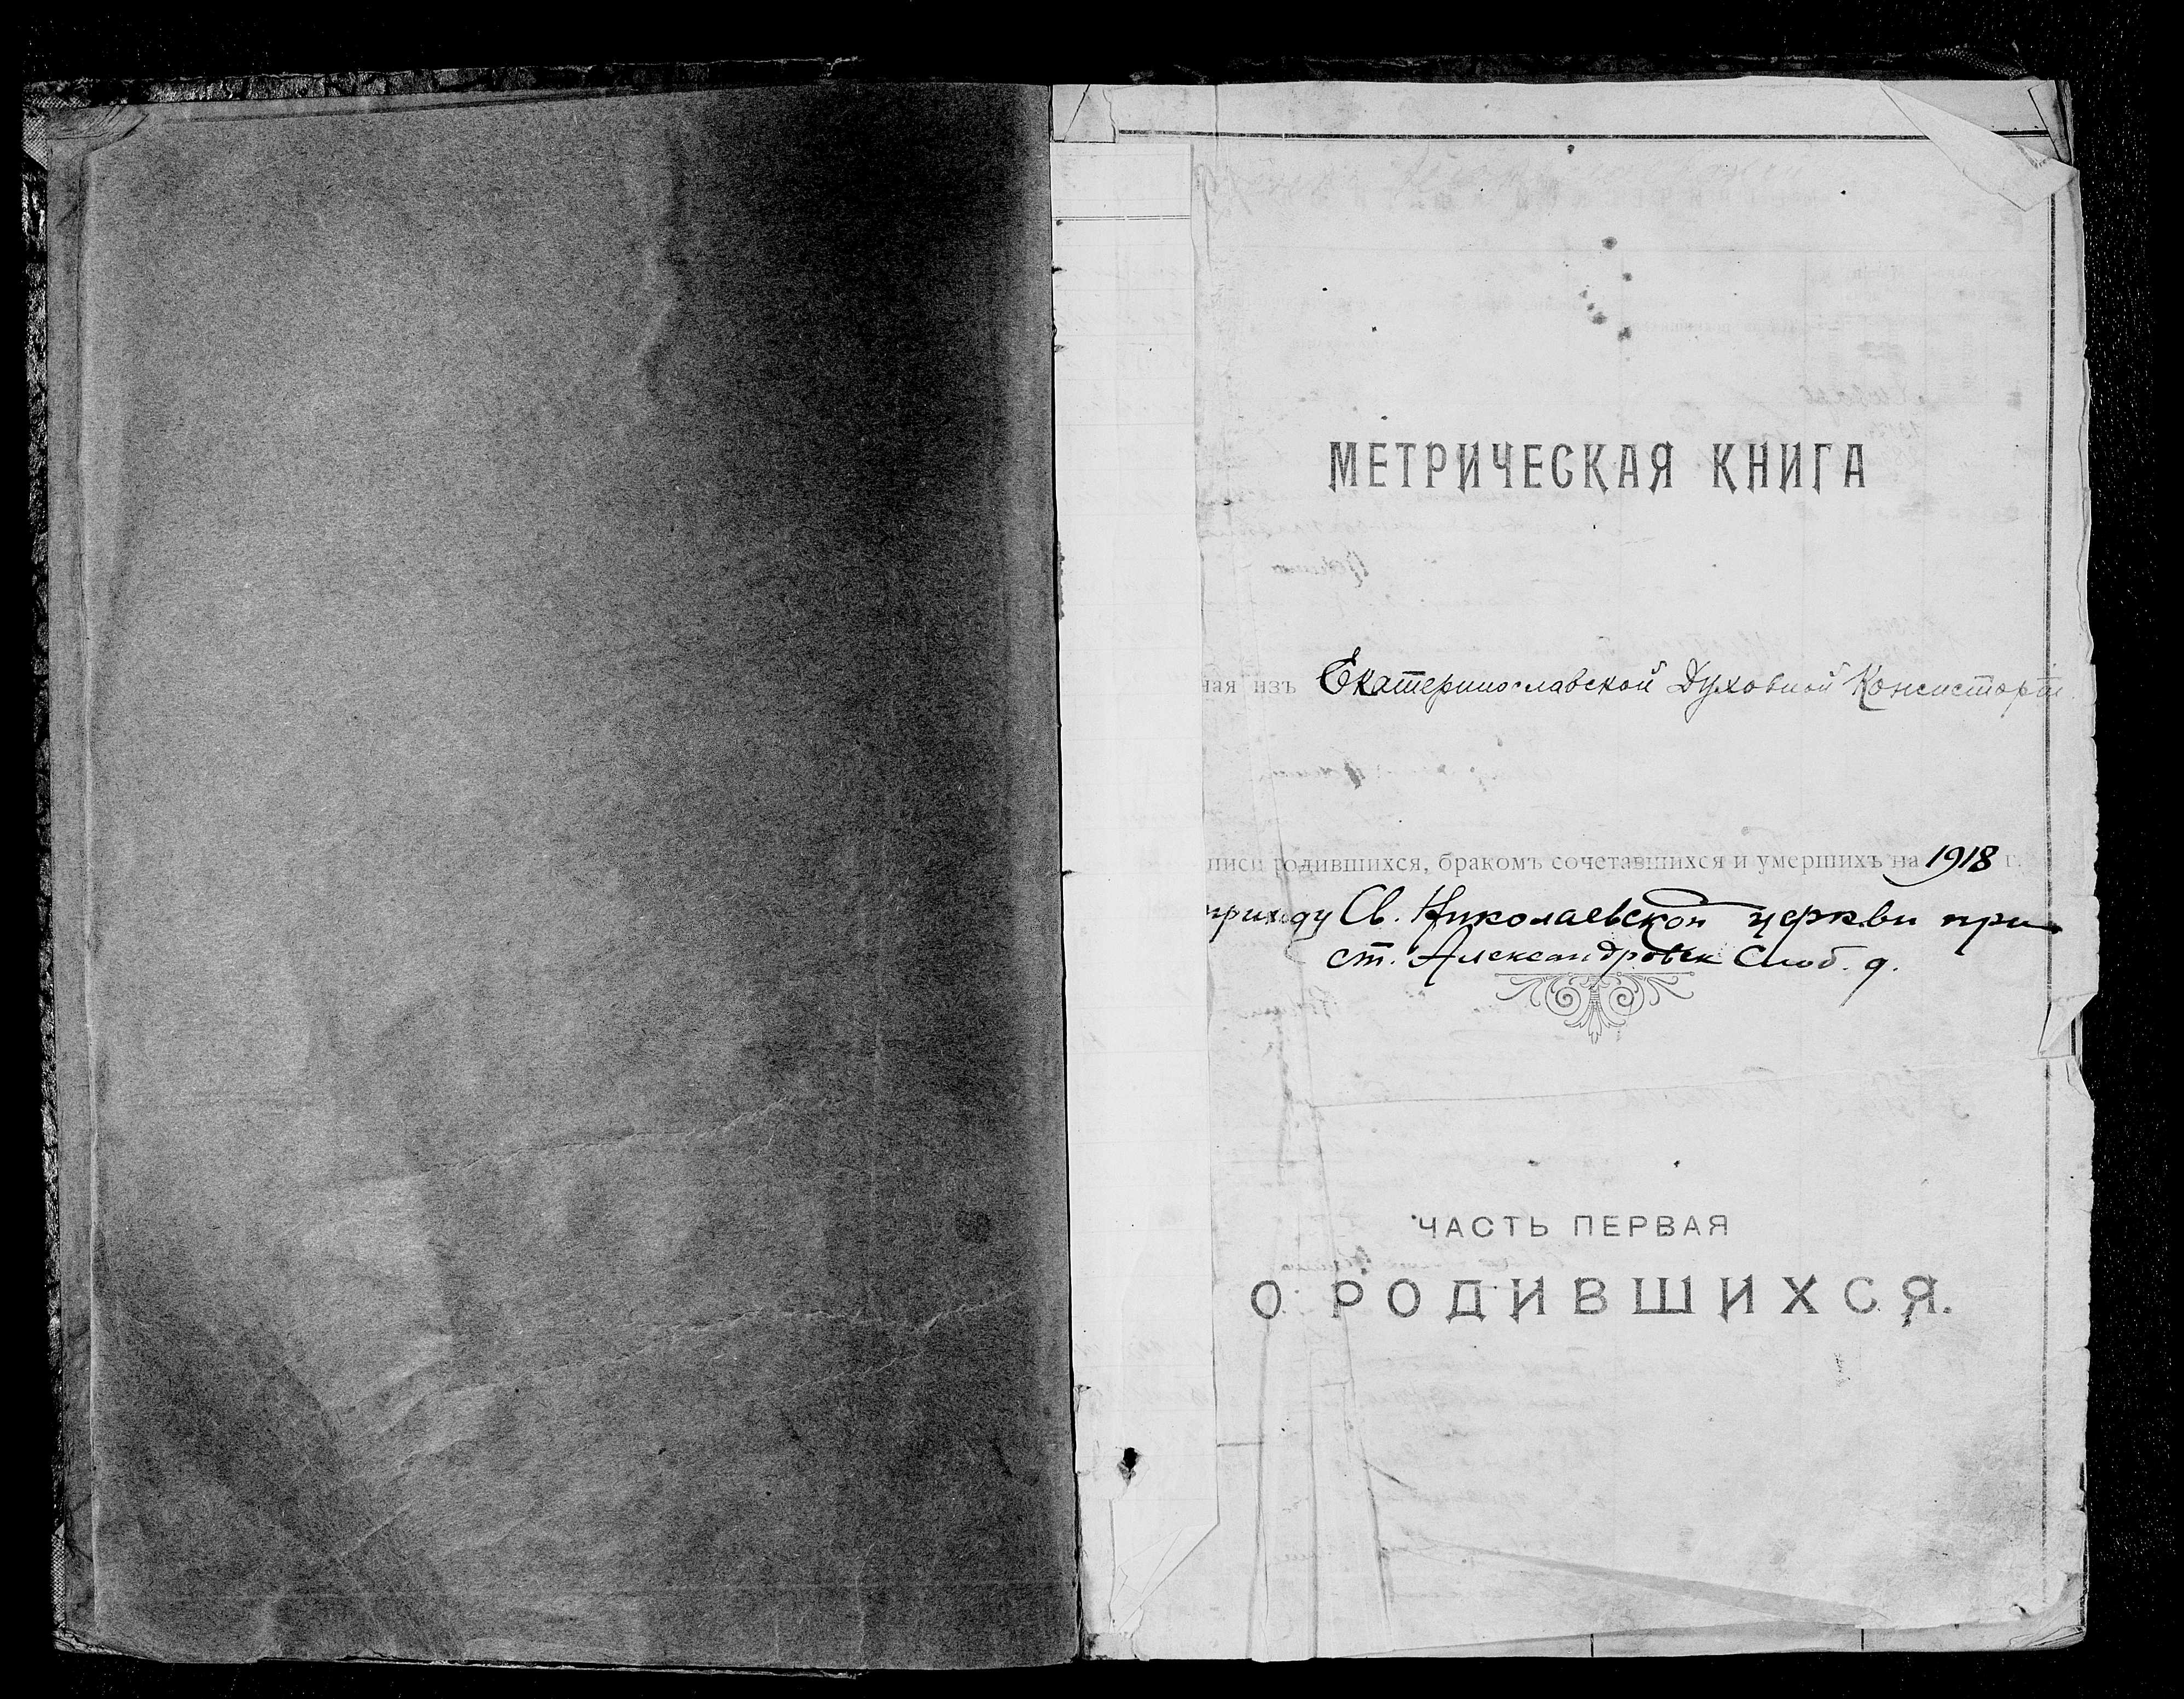 МЕТРИЧЕСКАЯ КНИГА
ная изъ Екатеринославской Духовной Консисторіи
писи родившихся, бракомъ сочетавшихся и умершихъ на 1918 г.
приходу Св. Николаевской церкви при
ст. Александровск
ЧАСТЬ ПЕРВАЯ
О РОДИВШИХСЯ.